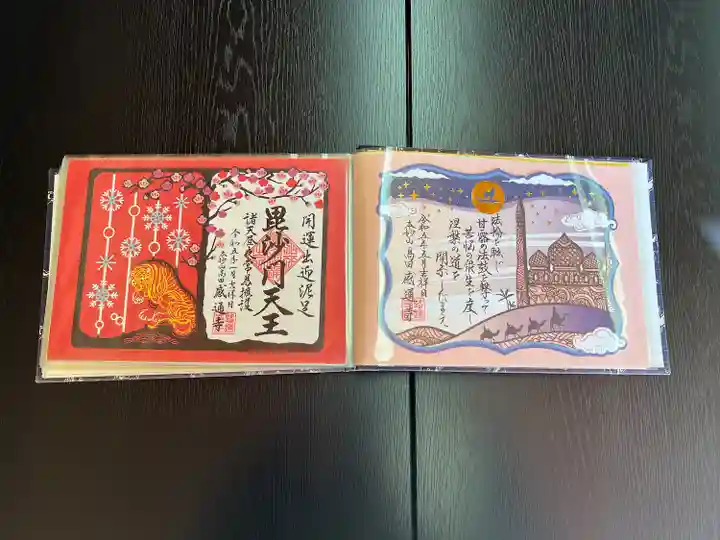 開運出迎泥足
毘沙門天王
諸天昼夜常為
令和五年一月吉祥日
高田感通寺
法輪を転じ
甘露の法鼓を撃って
苦悩の衆生を度し
涅槃の道を
開示したまえ
令和五年五月吉祥日
高田感通寺